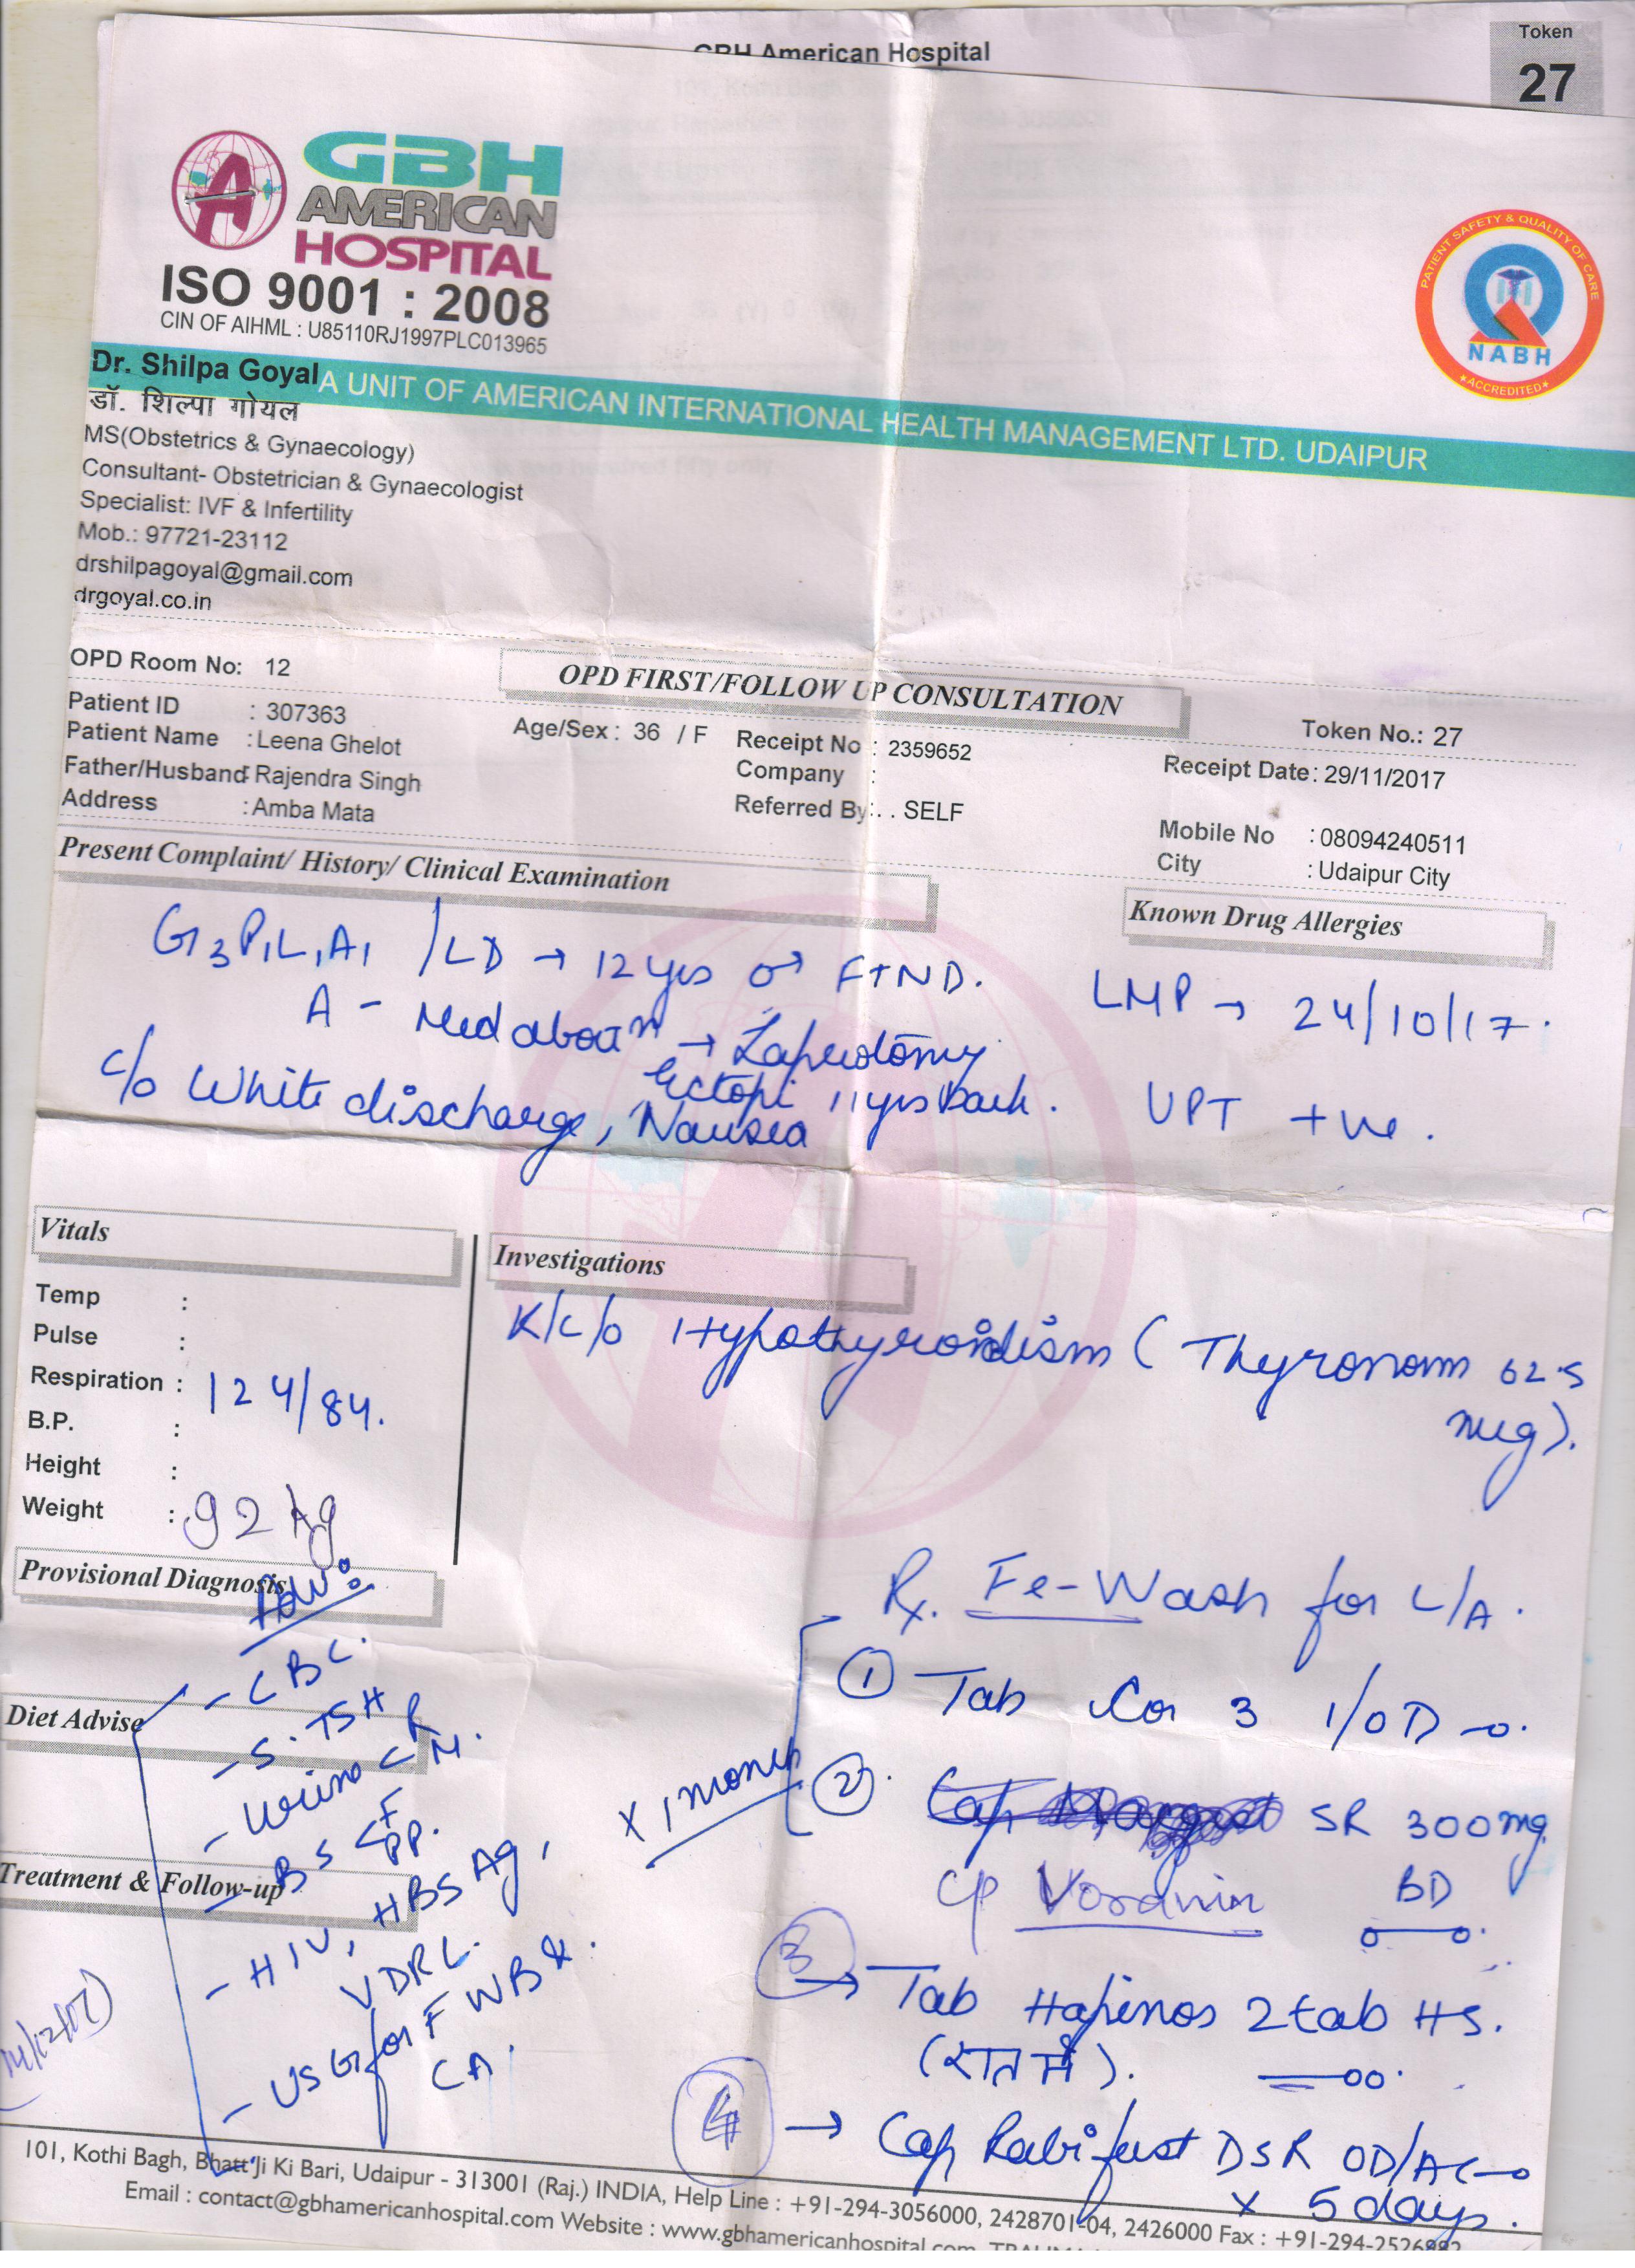 American Hospital
Token
27
GBH
AMERICAN
HOSPITAL
ISO 9001 : 2008
CIN OF AIHML : U85110RJ1997PLC013965
PATIENT SAFETY & QUALITY OF CARE
NABH
ACCREDITED
A UNIT OF AMERICAN INTERNATIONAL HEALTH MANAGEMENT LTD. UDAIPUR
Dr. Shilpa Goyal
डॉ. शिल्पा गोयल
MS(Obstetrics & Gynaecology)
Consultant- Obstetrician & Gynaecologist
Specialist: IVF & Infertility
Mob.: 97721-23112
drshilpagoyal@gmail.com
drgoyal.co.in
OPD Room No: 12
OPD FIRST/FOLLOW UP CONSULTATION
Token No.: 27
Patient ID : 307363
Patient Name : Leena Ghelot
Age/Sex : 36 / F
Receipt No : 2359652
Receipt Date : 29/11/2017
Father/Husband : Rajendra Singh
Company :
Address : Amba Mata
Referred By : . . SELF
Mobile No : 08094240511
City : Udaipur City
Present Complaint/ History/ Clinical Examination
Known Drug Allergies
G3P1L1A1 /LD → 12 yrs ♂ FTND.
LMP → 24/10/17.
A - Med abortn → Laparotomy
Ectopi 11 yrs back.
c/o White discharge, Nausea
UPT +ve.
Vitals
Temp :
Pulse :
Respiration :
124/84.
B.P. :
Height :
Weight : 92 kg
Investigations
K/c/o Hypothyroidism ( Thyronorm 62.5
mcg).
Provisional Diagnosis
Adv:
- CBC.
- S. TSH
Diet Advise
- Urine C R
M.
- BS < F
PP.
Treatment & Follow-up
- HIV, HBSAg,
VDRL.
- USG for FWB &
CA.
Rx. Fe-Wash for L/A.
① Tab Cor 3 1/OD -o.
② Cap SR 300mg
BD
x 1 month
③ → Tab 2 tab HS.
(रात में). —oo.
④ → Cap Rabifast DSR OD/AC -o
x 5 days.
101, Kothi Bagh, Bhatt Ji Ki Bari, Udaipur - 313001 (Raj.) INDIA, Help Line : +91-294-3056000, 2428701-04, 2426000 Fax : +91-294-
Email : contact@gbhamericanhospital.com Website : www.gbhamericanhospital.com